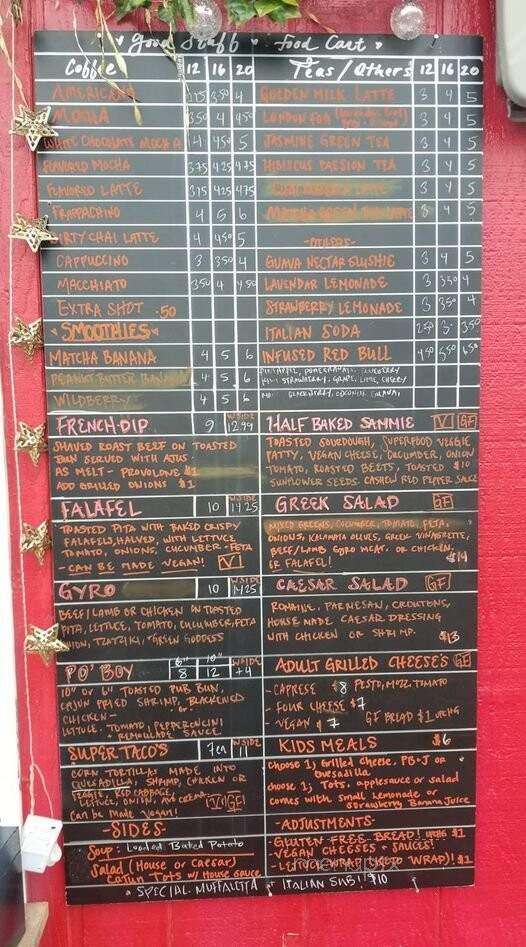 Good Stuff • Food Cart
Coffee 12 16 20
AMERICANO 3.50 4
MOCHA 350 4 450
WHITE CHOCOLATE MOCHA 4 450 5
FLAVORED MOCHA 375 425 475
FLAVORED LATTE 375 425 475
FRAPPACHINO 4 5 6
DIRTY CHAI LATTE 4 450 5
CAPPUCCINO 3 350 4
MACCHIATO 350 4 450
EXTRA SHOT .50
SMOOTHIES
MATCHA BANANA 4 5 6
PEANUT BUTTER BANANA 4 5 6
WILDBERRY 4 5 6
Teas/Others 12 16 20
GOLDEN MILK LATTE 3 4 5
LONDON FOG 3 4 5
JASMINE GREEN TEA 3 4 5
HIBISCUS PASSION TEA 3 4 5
LATTE 3 4 5
MATCHA GREEN TEA LATTE 3 4 5
-OTHERS-
GUAVA NECTAR SLUSHIE 3 4 5
LAVENDAR LEMONADE 3 350 4
STRAWBERRY LEMONADE 3 350 4
ITALIAN SODA 250 3 350
INFUSED RED BULL 450 550 650
PINEAPPLE, POMEGRANATE, BLUEBERRY
KIWI STRAWBERRY, GRAPE, LIME, CHERRY
BLACKBERRY, COCONUT, GUAVA
FRENCH-DIP 9 W/SIDE 12.99
SHAVED ROAST BEEF ON TOASTED
BUN SERVED WITH AJUS.
AS MELT - PROVOLONE $1
ADD GRILLED ONIONS $1
FALAFEL 10 W/SIDE 14.25
TOASTED PITA WITH BAKED CRISPY
FALAFELS, HALVED, WITH LETTUCE
TOMATO, ONIONS, CUCUMBER - FETA
- CAN BE MADE VEGAN! V
GYRO 10 W/SIDE 14.25
BEEF/LAMB OR CHICKEN ON TOASTED
PITA, LETTUCE, TOMATO, CUCUMBER, FETA
ONION, TZATZIKI, GREEN GODDESS
PO' BOY 6" 8 10" 12 W/SIDE +4
10" OR 6" TOASTED PUB BUN,
CAJUN FRIED SHRIMP, BLACKENED
CHICKEN -
LETTUCE, TOMATO, PEPPERONCINI
REMOULADE SAUCE
SUPER TACO'S 7ea W/SIDE 11
CORN TORTILLAS MADE INTO
QUESADILLA, SHRIMP, CHICKEN OR
VEGGIE, RED CABBAGE,
LETTUCE, ONION, CREMA V GF
Can be Made Vegan!
-SIDES-
Soup: Loaded Baked Potato
Salad (House or Caesar)
Cajun Tots w/ House sauce
HALF BAKED SAMMIE V GF
TOASTED SOURDOUGH, SUPERFOOD VEGGIE
PATTY, VEGAN CHEESE, CUCUMBER, ONION
TOMATO, ROASTED BEETS, TOASTED $10
SUNFLOWER SEEDS. CASHEW RED PEPPER SAUCE
GREEK SALAD GF
MIXED GREENS, CUCUMBER, TOMATO, FETA,
ONIONS, KALAMATA OLIVES, GREEK VINAGRETTE,
BEEF/LAMB GYRO MEAT, OR CHICKEN,
ER FALAFEL! $14
CAESAR SALAD GF
ROMAINE, PARMESAN, CROUTONS,
HOUSE MADE CAESAR DRESSING
WITH CHICKEN OR SHRIMP. $13
ADULT GRILLED CHEESE'S GF
- CAPRESE $8 PESTO, MOZZ, TOMATO
- FOUR CHEESE $7
- VEGAN $7 GF BREAD $1 UPCHG
KIDS MEALS $6
choose 1; Grilled cheese, PB+J or
Quesadilla
choose 1; Tots, applesauce or salad
comes with small lemonade or
Strawberry Banana Juice
-ADJUSTMENTS-
- GLUTEN FREE BREAD! UPCHG $1
- VEGAN CHEESES + SAUCES!
- LETTUCE WRAP! (KETO WRAP)! $1
• SPECIAL MUFFALETTA + ITALIAN SUB! $10